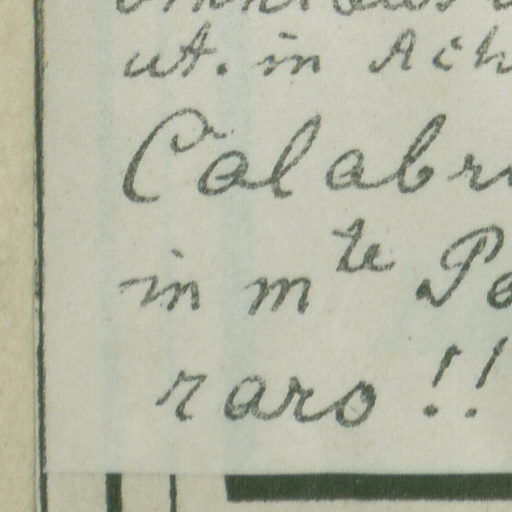 ut. in Ach
Calabri
in m te Po
raro !!